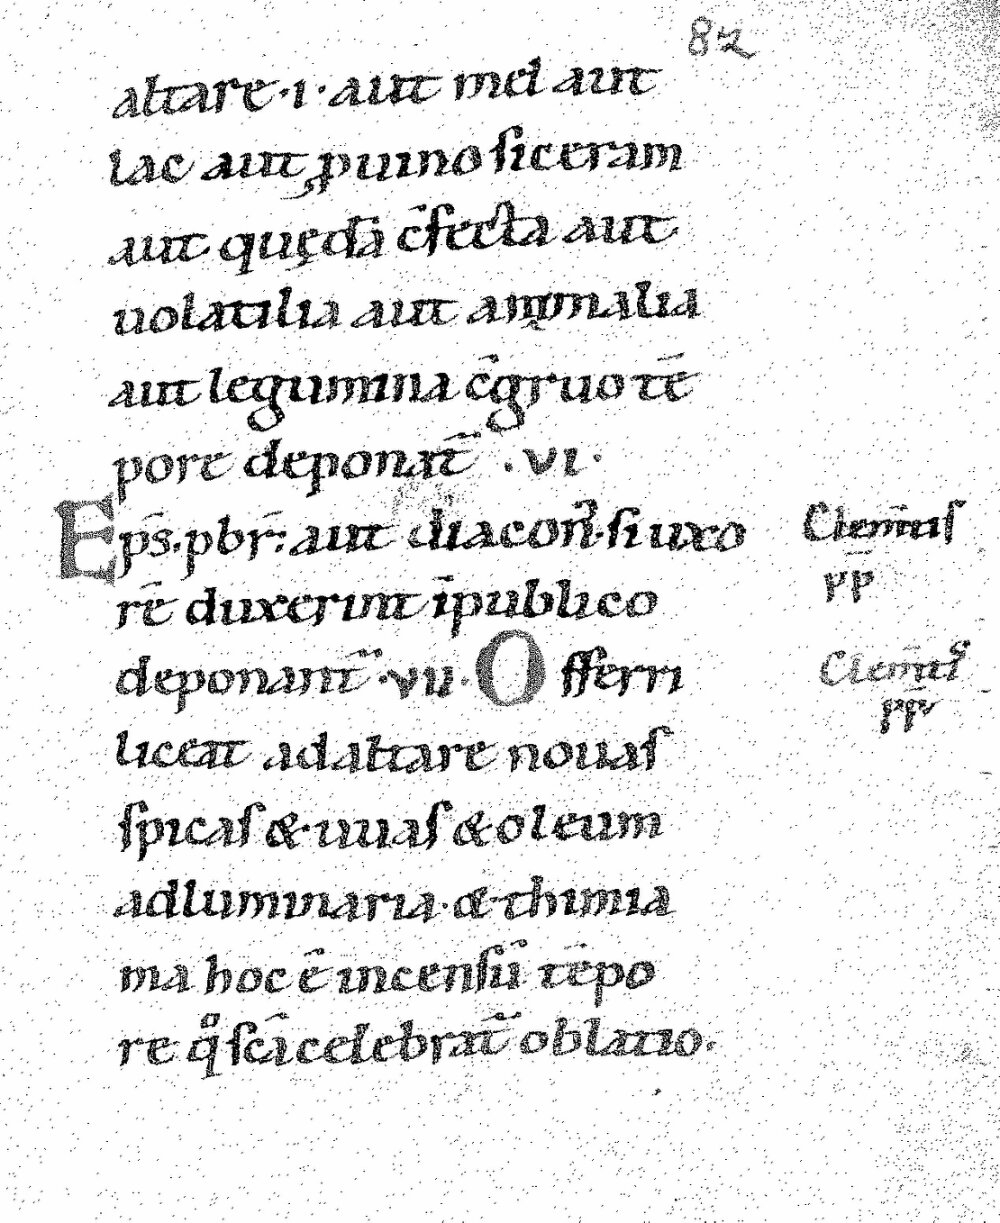 82
altare·i·aut mel aut
lac aut ꝓ uino siceram
aut quędā c̄fecta aut
uolatilia aut animalia
aut legumina c̄gruo tē
pore deponat̄ ·vi·
Ep̄s·pbr̄: aut diacon̄·si uxo
rē duxerint īpublico
deponant̄·vii· Offerri
liceat adaltare nouas
spicas &·uuas & oleum
adluminaria·&·thimia
ma hoc ē incensū tēpo
re qͦ sc̄a celebrat̄ oblatio.
Clem̄tis
pp̄
Clem̄ti᾽
pp̄